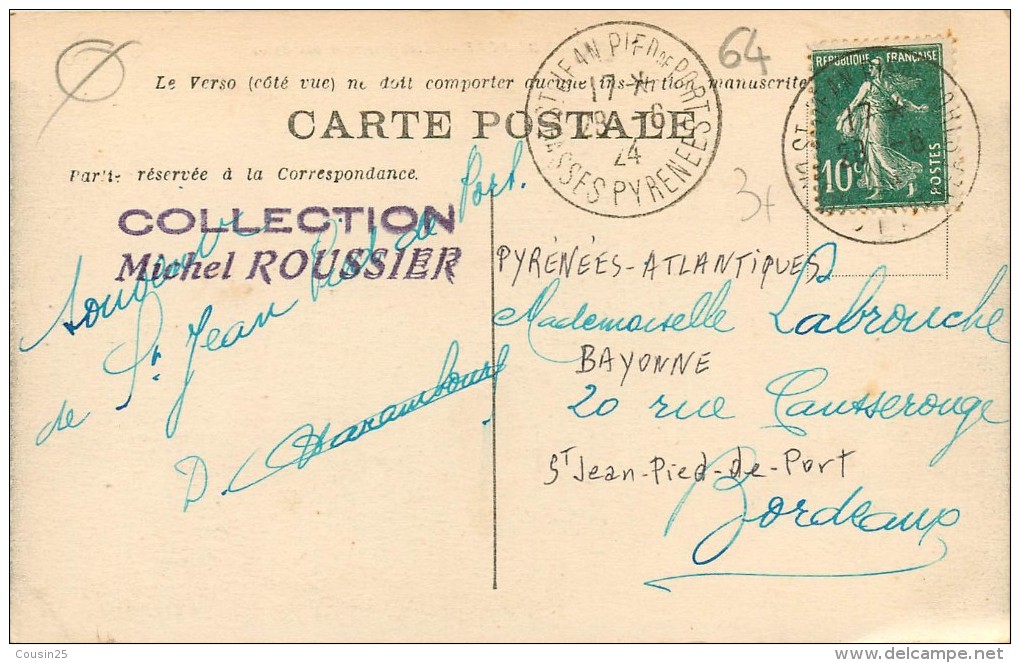 64
Le Verso (côté vue) ne doit comporter aucune inscription manuscrite
CARTE POSTALE
Partie réservée à la Correspondance.
ST JEAN PIED DE PORT
17 *
29 - 6
24
BASSES PYRENEES
REPUBLIQUE FRANÇAISE
10c
POSTES
17 *
29 6
3+
COLLECTION
Michel ROUSSIER
Souvenir
de St. Jean Pied de Port.
D. Harambourt
PYRÉNÉES-ATLANTIQUES
Mademoiselle Labrouche
BAYONNE
20 rue Causserouge
ST Jean-Pied-de-Port
Bordeaux
Cousin25
www.delcampe.net